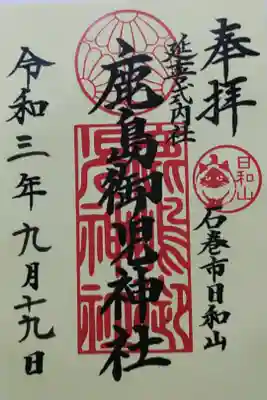 奉拝
日和山
石巻市日和山
延喜式内社
鹿島御児神社
鹿島御児神社
令和三年九月十九日